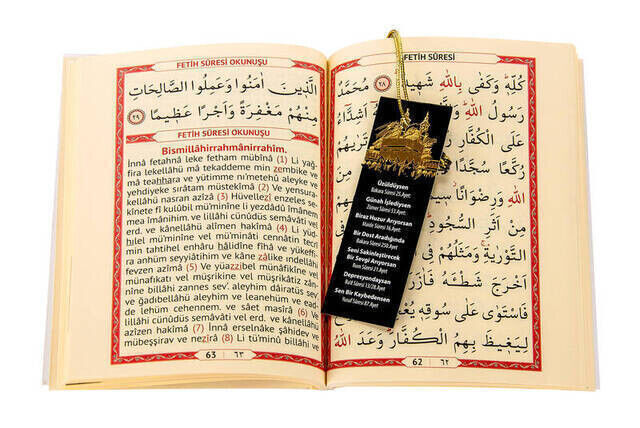 FETİH SÛRESİ
كُلِّهٖ وَكَفٰى بِاللّٰهِ ٢٨ مُحَمَّدٌ
رَسُولُ اللّٰهِ اَشِدَّٓاءُ
عَلَى الْكُفَّارِ
رُكَّعًا سُجَّدًا
اللّٰهِ وَرِضْوَانًا
مِنْ اَثَرِ السُّجُودِ
التَّوْرٰيةِ وَمَثَلُهُمْ
اَخْرَجَ شَطْـَٔهُ
فَاسْتَوٰى عَلٰى سُوقِهٖ
لِيَغٖيظَ بِهِمُ الْكُفَّارَ وَعَدَ اللّٰهُ
62 ٦٢
Üzüldüysen
Bakara Sûresi 25.Ayet
Günah İşlediysen
Zümer Sûresi 53.Ayet
Biraz Huzur Arıyorsan
Maide Sûresi 16.Ayet
Bir Dost Aradığında
Bakara Sûresi 250.Ayet
Seni Sakinleştirecek
Bir Sevgi Arıyorsan
Rum Sûresi 21.Ayet
Depresyondaysan
Ra'd Sûresi 13/28.Ayet
Sen Bir Kaybedensen
Yusuf Sûresi 87.Ayet
FETİH SÛRESİ OKUNUŞU
الَّذٖينَ اٰمَنُوا وَعَمِلُوا الصَّالِحَاتِ
مِنْهُمْ مَغْفِرَةً وَاَجْرًا عَظٖيمًا ٢٩
FETİH SÛRESİ OKUNUŞU
Bismillâhirrahmânirrahîm.
İnnâ fetahnâ leke fetham mübînâ (1) Li yağ-
fira lekellâhü mâ tekaddeme min zembike ve
mâ teahhara ve yütimme ni'metehû aleyke ve
yehdiyeke sırâtam müstekîmâ (2) Ve yensura-
kellâhü nasran azîzâ (3) Hüvellezî enzeles se-
kînete fî kulûbil mü'minîne li yezdâdû îmânem
mea îmânihim. ve lillâhi cünûdüs semâvâti vel
erd. ve kânellâhü alîmen hakîmâ (4) Li yüd-
hılel mü'minîne vel mü'minâti cennâtin tecrî
min tahtihel enhâru hâlidîne fîhâ ve yükeffi-
ra anhüm seyyiâtihim ve kâne zâlike ındellâhi
fevzen azîmâ (5) Ve yüazzibel münâfikîne vel
münâfikati vel müşrikîne vel müşrikâtiz zânnî-
ne billâhi zannes sev'. aleyhim dâiratüs sev'
ve ğadıbellâhü aleyhim ve leanehüm ve ead-
de lehüm cehennem. ve sâet masîrâ (6) Ve
lillâhi cünûdüs semâvâti vel erd. ve kânellâhü
azîzen hakîmâ (7) İnnâ erselnâke şâhidev ve
mübeşşirav ve nezîrâ (8) Li tü'minû billâhi ve
63 ٦٣